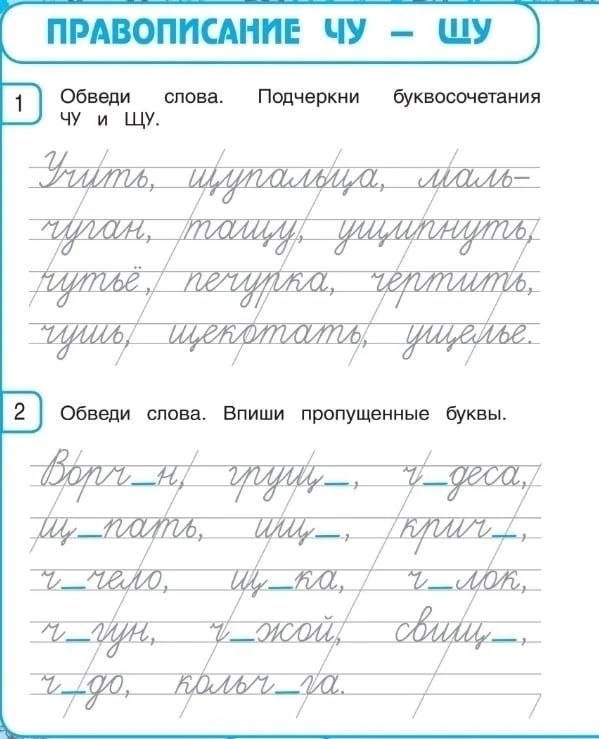 ПРАВОПИСАНИЕ ЧУ – ЩУ
1 Обведи слова. Подчеркни буквосочетания
ЧУ и ЩУ.
Учить, щупальца, маль-
чуган, тащу, ущипнуть,
чутьё, печурка, чертить,
чушь, щекотать, ущелье.
2 Обведи слова. Впиши пропущенные буквы.
Ворч_н, грущ_, ч_деса,
щ_пать, ищ_, крич_,
ч_чело, щ_ка, ч_лок,
ч_гун, ч_жой, свищ_,
ч_до, кольч_га.